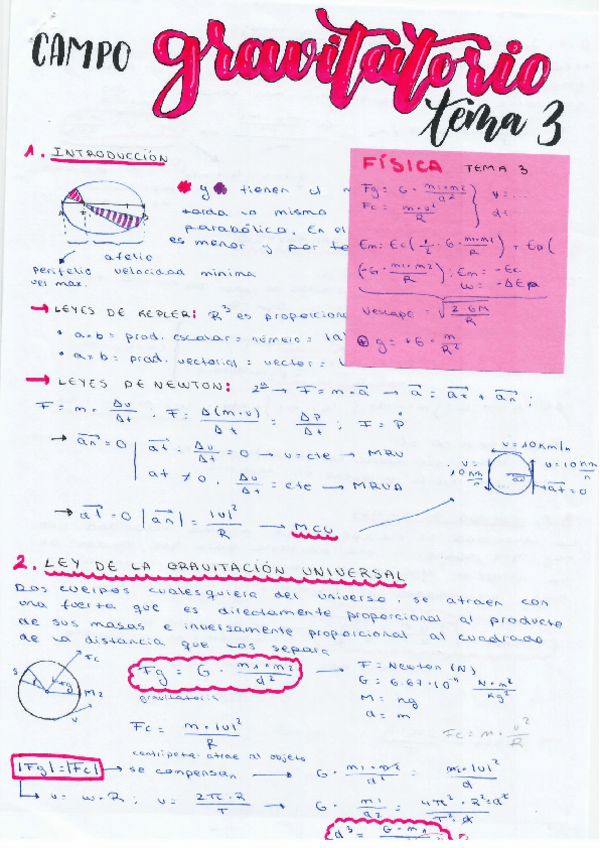 CAMPO gravitatorio
tema 3
1. INTRODUCCIÓN
y tienen el
tarda lo mismo
parabólica. En el
es menor y por
afelio
perifelio velocidad mínima
vel max.
FÍSICA TEMA 3
Fg = G · m1·m2 / d²
Fc = m·v² / R
v = ...
d = ...
Em = Ec (1/2 · G · m1·m1 / R) + Ep (
(-G · m1·m2 / R); Em = -Ec
W = -ΔEp
Vescape = √(2GM / R)
g = +G · m / R²
→ LEYES DE KEPLER: R³ es proporcion
• a×b = prod. escalar = número = |a|
• a×b = prod. vectorial = vector =
→ LEYES DE NEWTON: 2ª → F = m·a → a = at + an ;
F = m · Δv / Δt . F = Δ(m·v) / Δt = Δp / Δt ; F = p
→ an = 0 | at = Δv / Δt = 0 → v = cte → MRU
at ≠ 0 . Δv / Δt = cte → MRUA
v = 10km/h
v = 10 km/h
v = 10 km/h
at = 0
→ at = 0 | an | = |v|² / R → MCU
2. LEY DE LA GRAVITACIÓN UNIVERSAL
Dos cuerpos cualesquiera del universo, se atraen con
una fuerza que es directamente proporcional al producto
de sus masas e inversamente proporcional al cuadrado
de la distancia que los separa
Fc
M2
v
Fg = G · m1·m2 / d²
gravitatoria
→ F = Newton (N)
G = 6.67·10⁻¹¹ N·m² / kg²
M = kg
d = m
Fc = m·|v|² / R
Fc = m · v² / R
centrípeta: atrae al objeto
|Fg| = |Fc| → se compensan → G · m1·m2 / d² = m·|v|² / d
→ v = w·R ; v = 2π·R / T → G · m1 / d² = 4π²·R²·d² / T²·R
d³ = G·m1